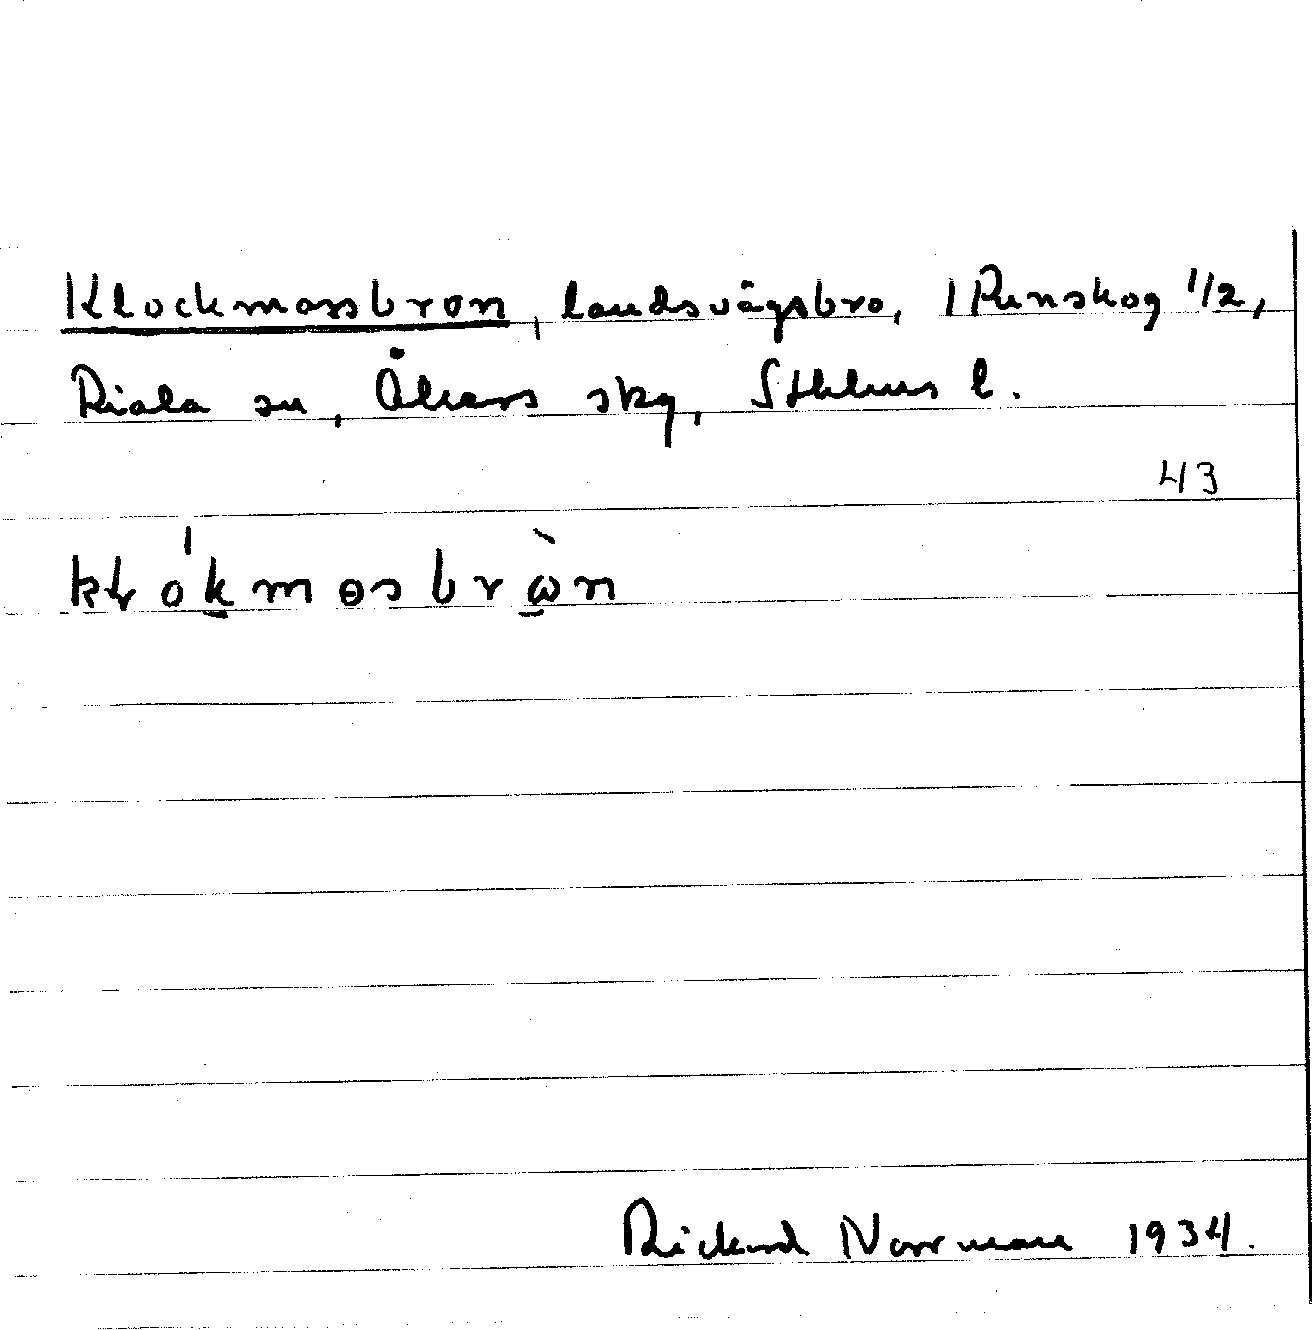 Klockmossbron, landsvägsbro, 1 Runskog 1/2,
Riala sn, Åkers skg, Sthlms l.
43
kló̱kmɵsbrὼ̱n
Rickard Norrman 1934.